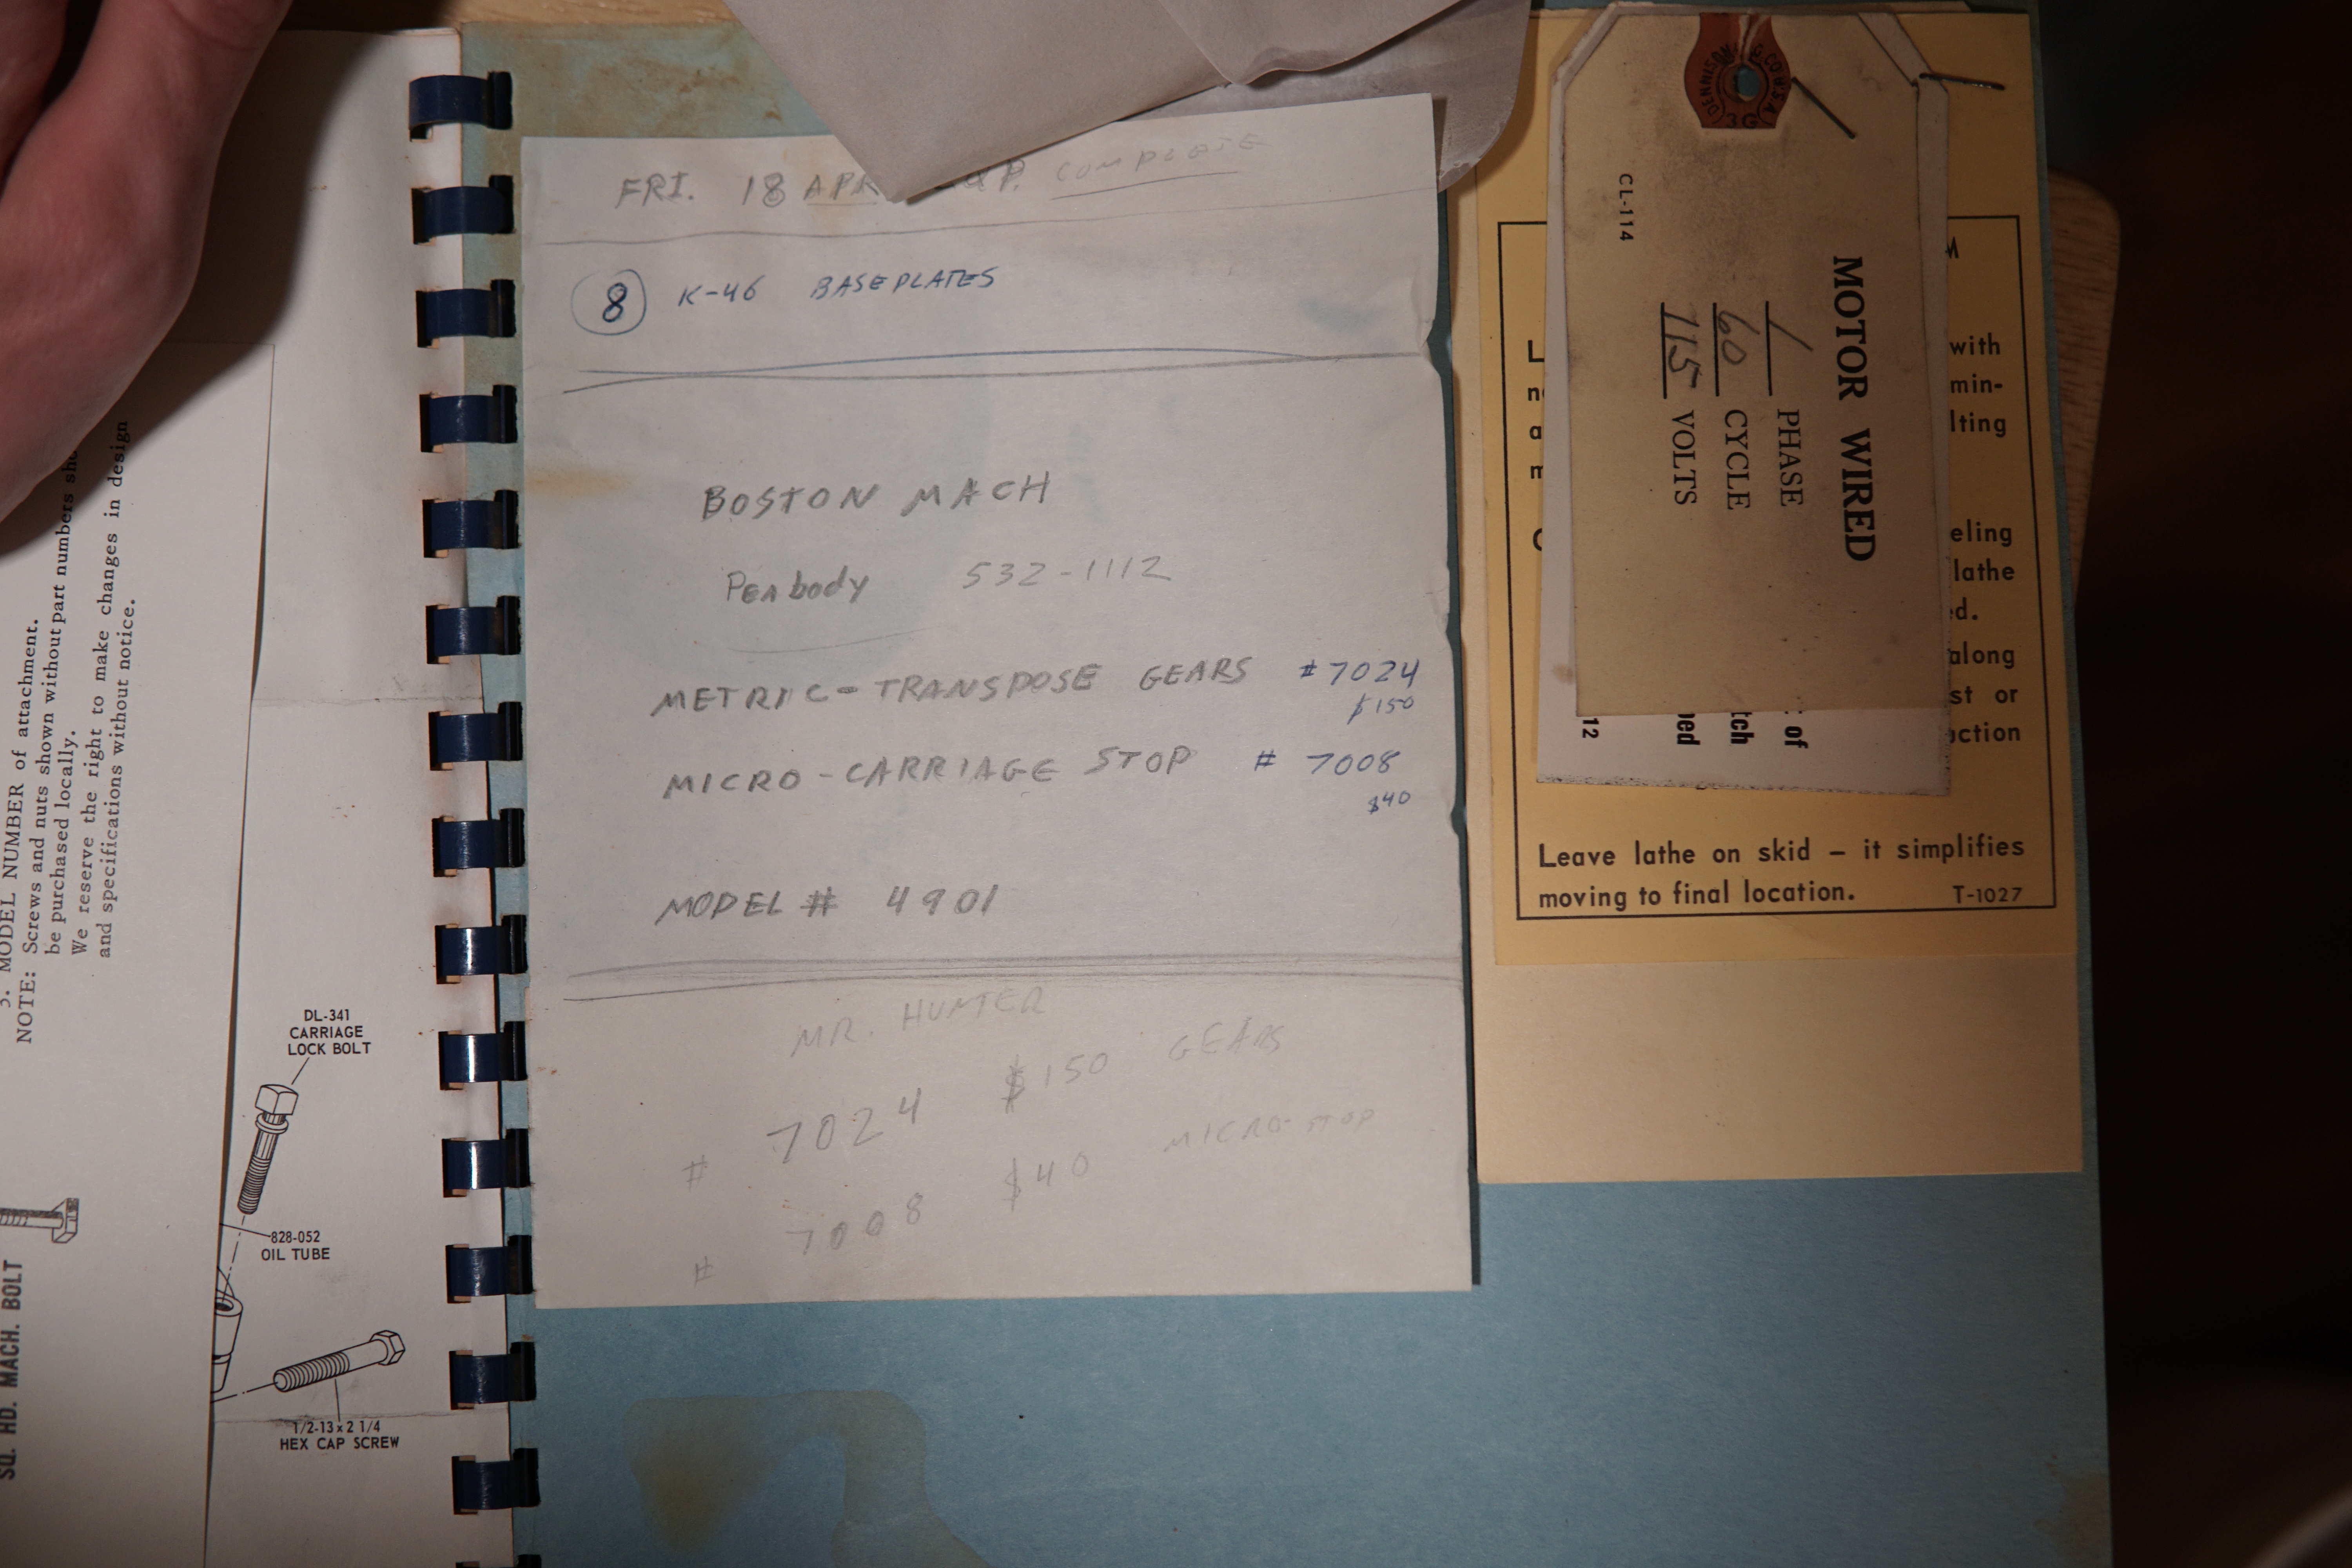 3. MODEL NUMBER of attachment.
NOTE: Screws and nuts shown without part numbers sho
be purchased locally.
We reserve the right to make changes in design
and specifications without notice.
DL-341
CARRIAGE
LOCK BOLT
828-052
OIL TUBE
1/2-13 x 2 1/4
HEX CAP SCREW
SQ. HD. MACH. BOLT
FRI. 18 APR COMPLETE
8 K-46 BASEPLATES
BOSTON MACH
Peabody 532-1112
METRIC-TRANSPOSE GEARS #7024
$150
MICRO-CARRIAGE STOP # 7008
$40
MODEL # 4901
MR. HUNTER
# 7024 $150 GEARS
# 7008 $40 MICRO-STOP
DENNISON
CO
U.S.A
3G
CL-114
MOTOR WIRED
1 PHASE
60 CYCLE
115 VOLTS
of
tch
ped
12
M
L with
n min-
a lting
m
eling
lathe
ed.
along
st or
ction
Leave lathe on skid – it simplifies
moving to final location. T-1027